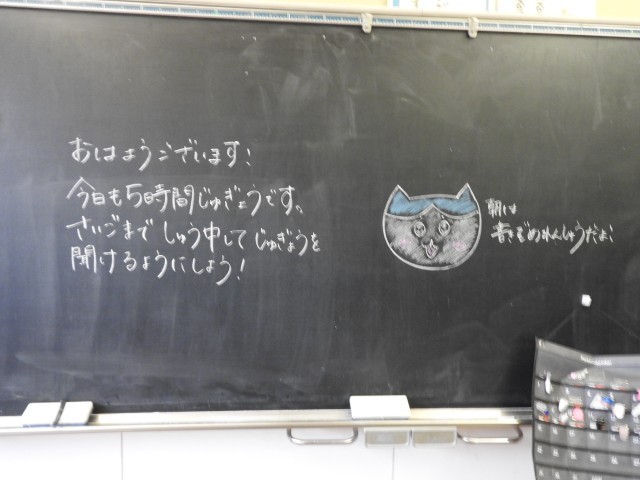 おはようございます!
今日も5時間じゅぎょうです。
さいごまでしゅう中してじゅぎょうを
聞けるようにしよう!
朝は
書きぞめれんしゅうだよ!